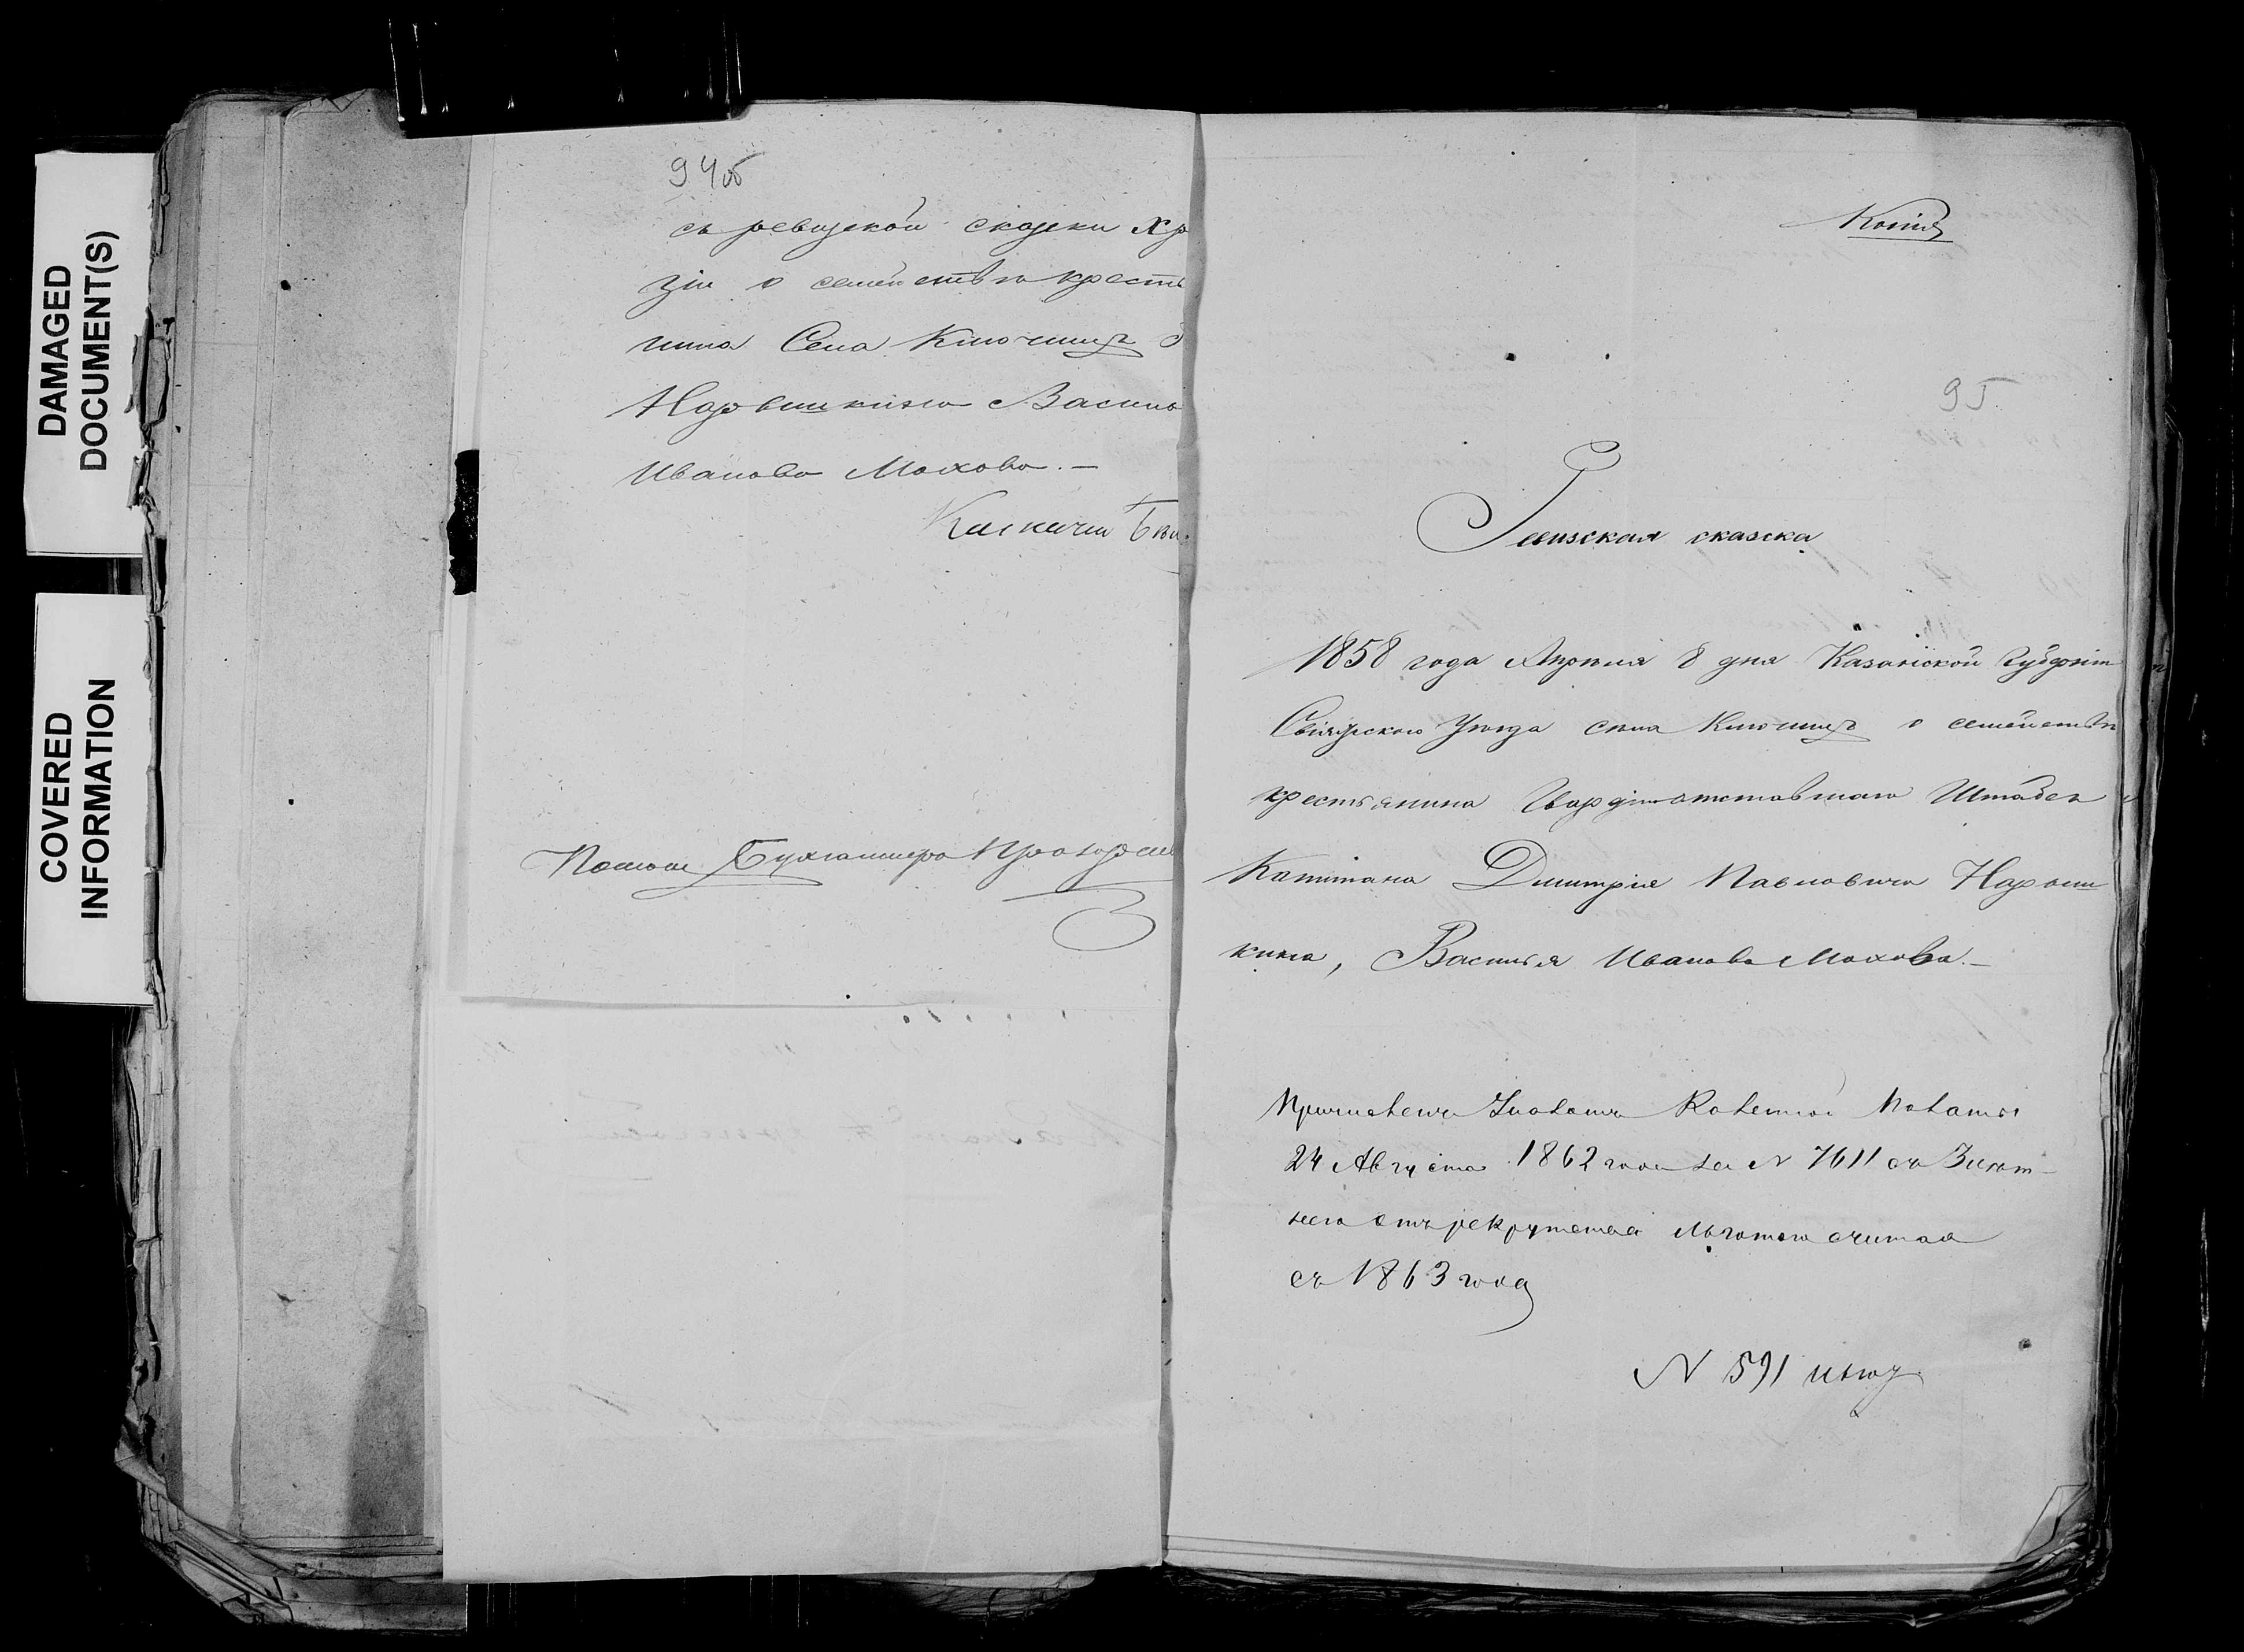 DAMAGED
DOCUMENT(S)
COVERED
INFORMATION
94об
съ ревизской сказки X р
зіи о семействѣ кресть
нина Села Ключищъ
Нарышкина Василь
Иванова Махова. —
Казначей
Помощ Бухгалтера
Копія
95
Ревизская сказка
1858 года Апрѣля 8 дня Казанской Губерніи
Свіяжскаго Уѣзда села Ключищъ о семействѣ
крестьянина Гвардіи отставнаго Штабсъ
Капитана Дмитрія Павловича Нарыш
кина, Василья Иванова Махова. —
Причисленъ Указомъ Казенной Палаты
24 Августа 1862 года за N 7611 съ
отъ рекрутства льготою считая
съ 1863 года
N 591